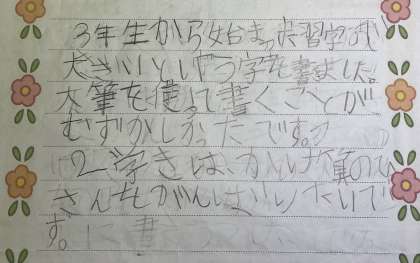 3年生から始まった習字では
大きいという字を書ました。
太筆を使って書くことが
むずかしかったです。
2学きは、かん算の
さんちがんばりたいで
す。